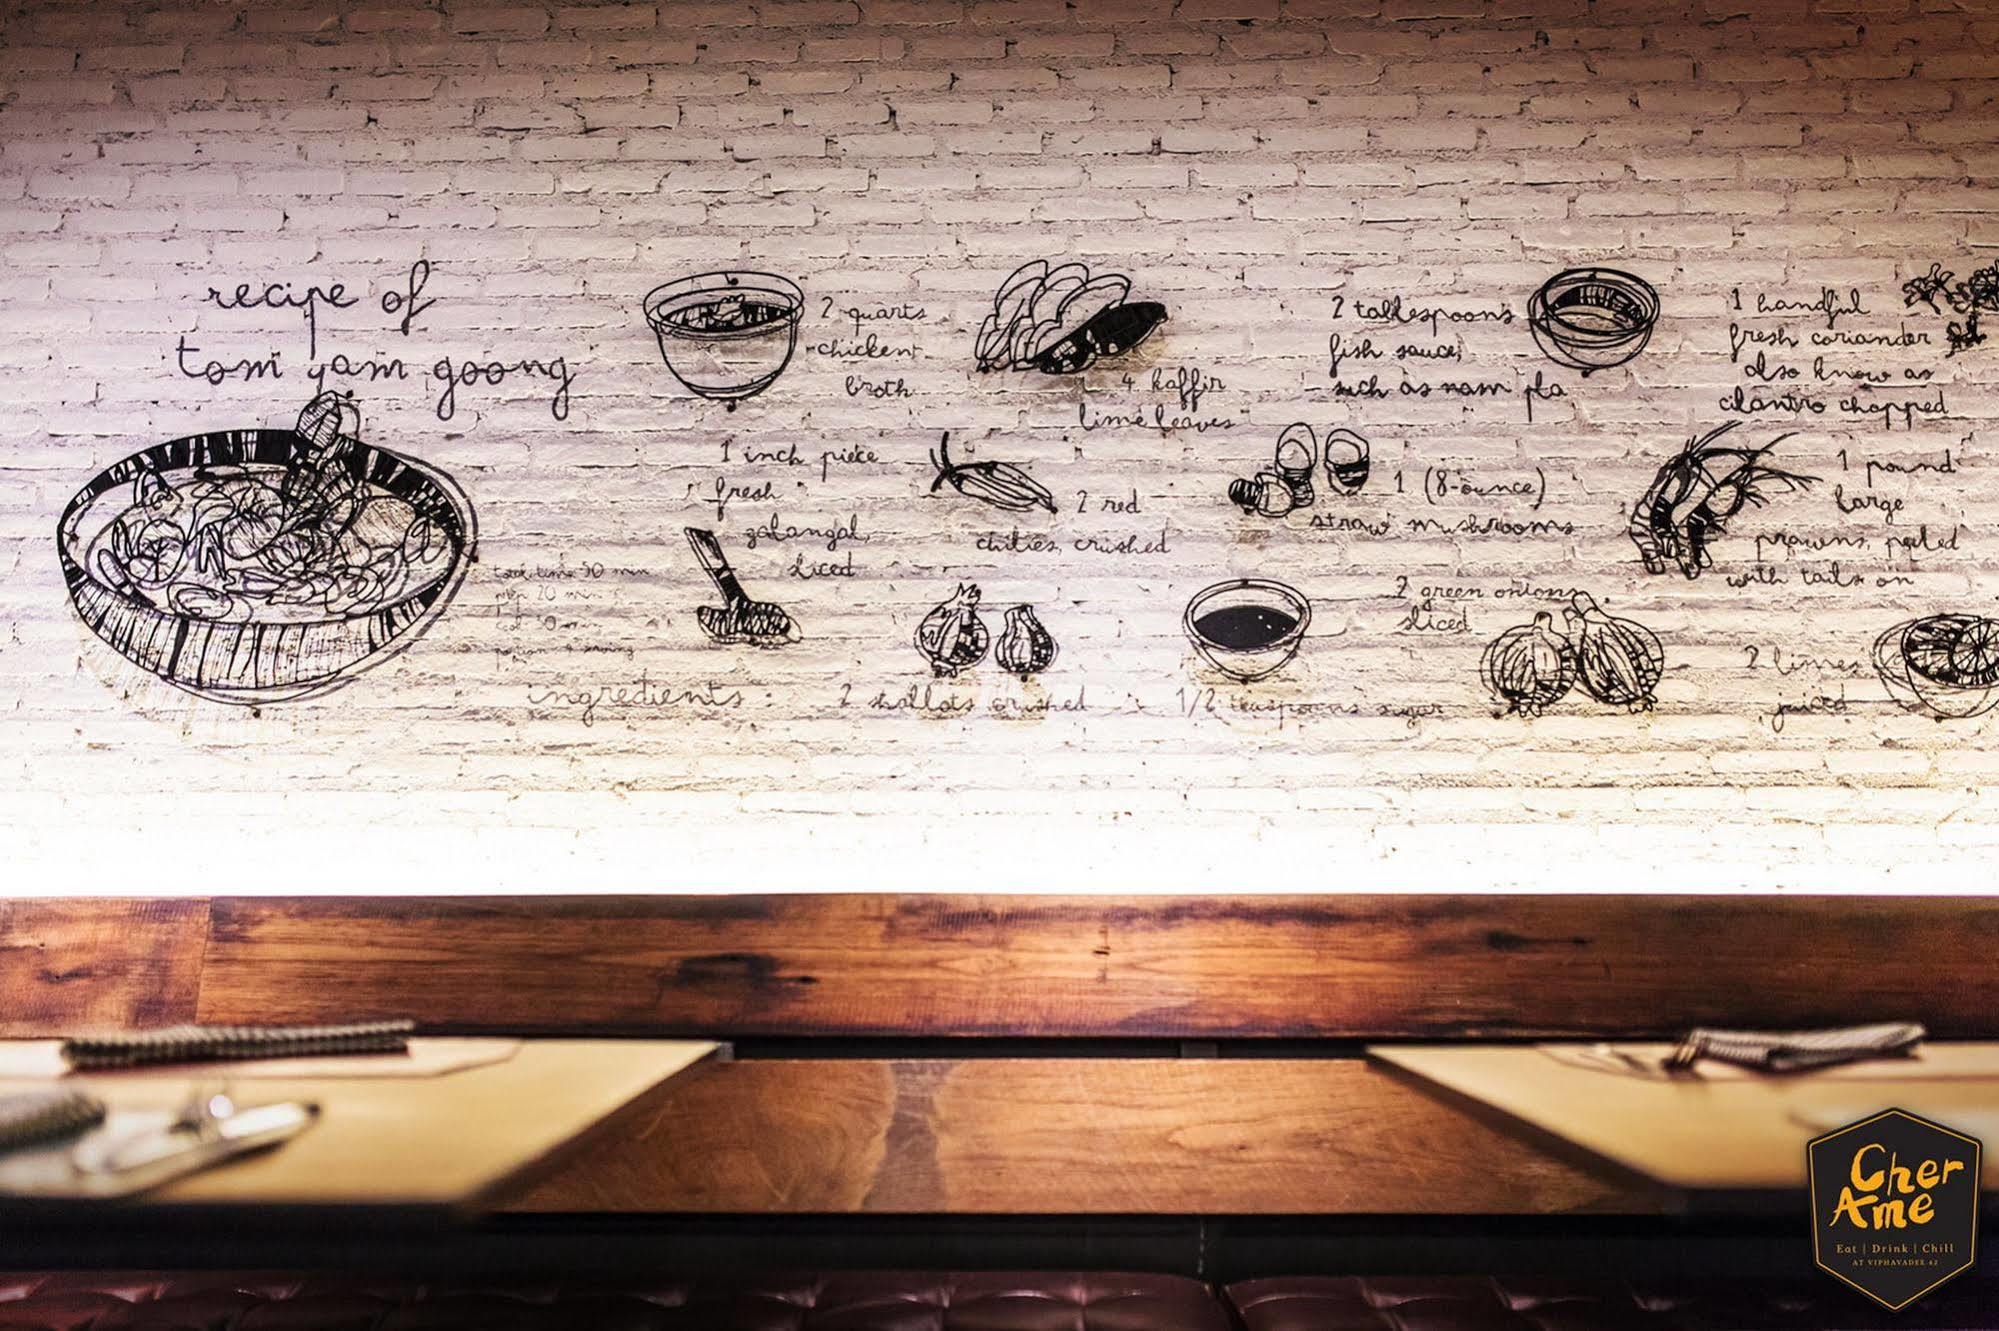 recipe of
tom yam goong
total time 50 min
prep 20 min
portion 4 serving
ingredients :
2 quarts
chicken
broth
4 kaffir
lime leaves
2 tablespoons
fish sauce,
such as nam pla
1 handful
fresh coriander
also know as
cilantro chopped
1 inch piece
fresh
galangal,
sliced
2 red
chilies, crushed
1 (8-ounce)
straw mushrooms
1 pound
large
prawns, peeled
with tails on
2 shallots crushed
1/2 teaspoons sugar
2 green onions
sliced
2 limes
juiced
Cher
Ame
Eat | Drink | Chill
AT VIPHAVADEE 42